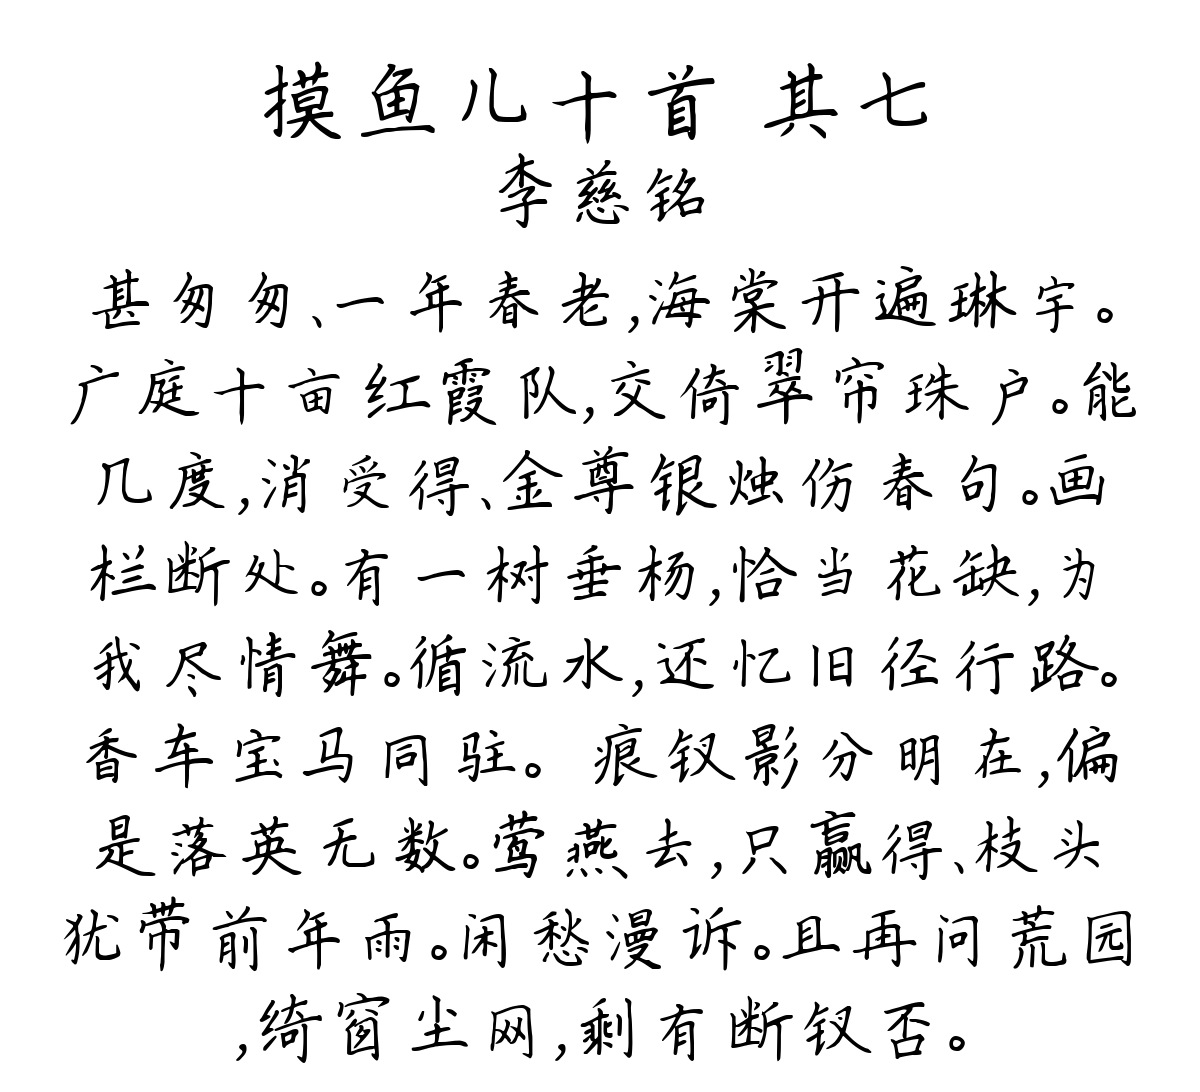 摸鱼儿十首 其七
李慈铭
甚匆匆、一年春老,海棠开遍琳宇。
广庭十亩红霞队,交倚翠帘珠户。能
几度,消受得、金尊银烛伤春句。画
栏断处。有一树垂杨,恰当花缺,为
我尽情舞。循流水,还忆旧径行路。
香车宝马同驻。 痕钗影分明在,偏
是落英无数。莺燕去,只赢得、枝头
犹带前年雨。闲愁漫诉。且再问荒园
,绮窗尘网,剩有断钗否。